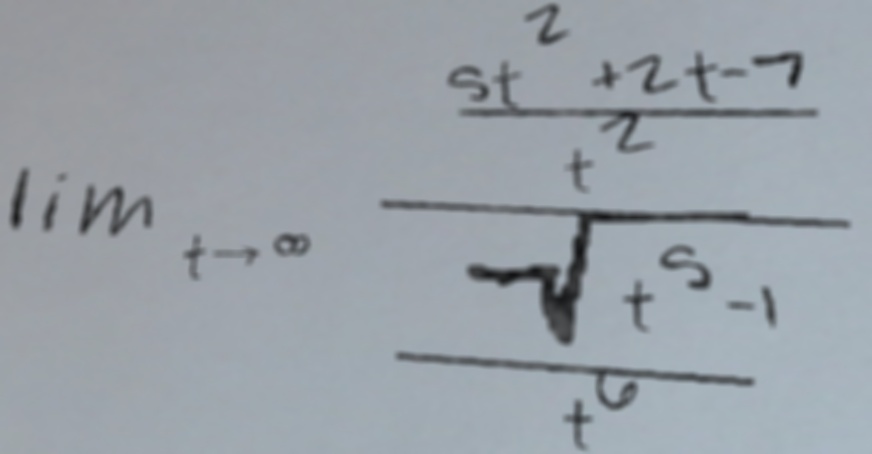 lim t→∞ \frac{\frac{5t^2+2t-7}{t^2}}{\frac{\sqrt{t^5-1}}{t^6}}